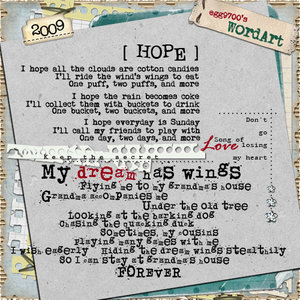 2009
egg9700's
WordArt
[ HOPE ]
I hope all the clouds are cotton candies
I'll ride the wind's wings to eat
One puff, two puffs, and more
I hope the rain becomes coke
I'll collect them with buckets to drink
One bucket, two buckets, and more
I hope everyday is Sunday
I'll call my friends to play with
One day, two days, and more
Don't
go
Song of
Love losing
my heart
keep the secret
My dream has wings
Flying me to my grandma's house
Grandma accompanies me
Under the old tree
Looking at the barking dog
Chasing the quacking duck
Sometimes, my cousins
Playing many games with me
I wish eagerly Hiding the dream wings stealthily
So I can stay at grandma's house
FOREVER